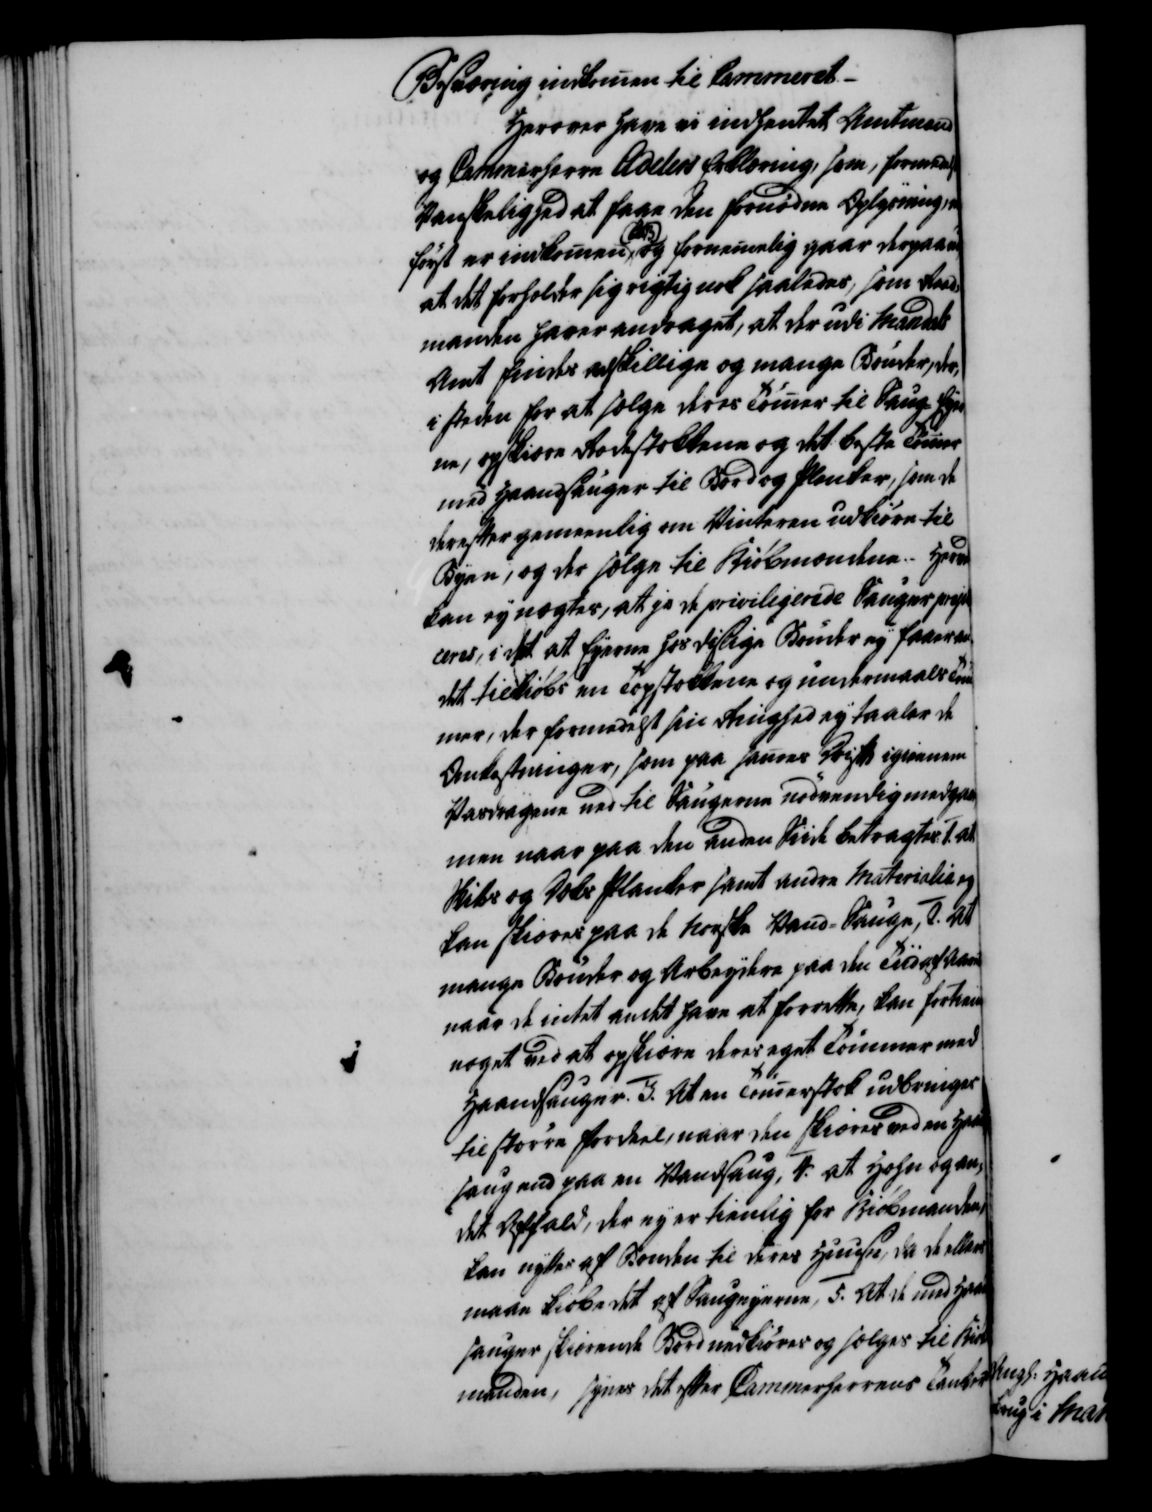 Besværing indkommen til Cammeret –
Herover have vi indhentet Amtmand
og Cammerherre Adelers Erklæring, som, formedelst
Vanskelighed at faae den fornødne Oplysning,
først er indkommen, og fornemmelig gaar derpaa
at det forholder sig rigtig nok saaledes, som
manden haver andraget, at der udi Mandals
Amt findes adskillige og mange Bønder, der,
i steden for at sælge deres Tømmer til Saug Eyer
ne, opskiære Rodestokkene og det beste Tømmer
med Haandsauger til Bord og Planker, som de
derefter gemeenlig om Vinteren udkiøre til
Byen, og der sælge til Kiøbmændene. Herved
kan ey nægtes, at jo de priviligerede Sauger præju
ceres, i det at Eyerne hos dislige Bønder ey faaer an
det til Kiøbs en Topstokkene og undermaals Tøm
mer, der formedelst sin Ringhed ey taaler de
Omkostninger, som paa sammes Drift igiennem
Vasdragene ned til Saugerne nødvendig medgaae
men naar paa den anden Side betragtes 1. at
Skibs og Planker samt andre Materialie ey
kan skiæres paa de Norske Vand-Sauge, 2. At
mange Bønder og Arbeydere paa den Tiid af Aaret
naar de intet andet have at forrette, kan fortiene
noget ved at opskiære deres eget Tømmer med
Haandsauger. 3. At en Tømmerstok udbringes
til større Fordeel, naar den skiæres ved en Haand
saug end paa en Vandsaug, 4. at Hohn og an,
det Affald, der ey er tienlig for Kiøbmanden,
kan nyttes af Bonden til deres Huuse, da de ellers
maae kiøbe det af Saugeyerne, 5. At de med Haand
sauger skiærende Bord nedkiøres og sælges til Kiøb
manden, synes det efter Cammerherrens Tanker
Angl. Haand
brug i Man